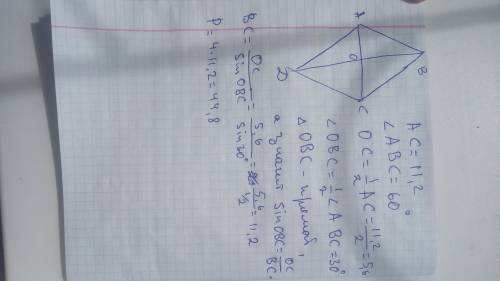 A
B
C
D
O
AC = 11,2
∠ABC = 60°
OC = 1/2 AC = 11,2/2 = 5,6
∠OBC = 1/2 ∠ABC = 30°
△OBC – прямой,
а значит sin OBC = OC/BC.
BC = OC/sin OBC = 5,6/sin 30° = 5,6/1/2 = 11,2
P = 4·11,2 = 44,8